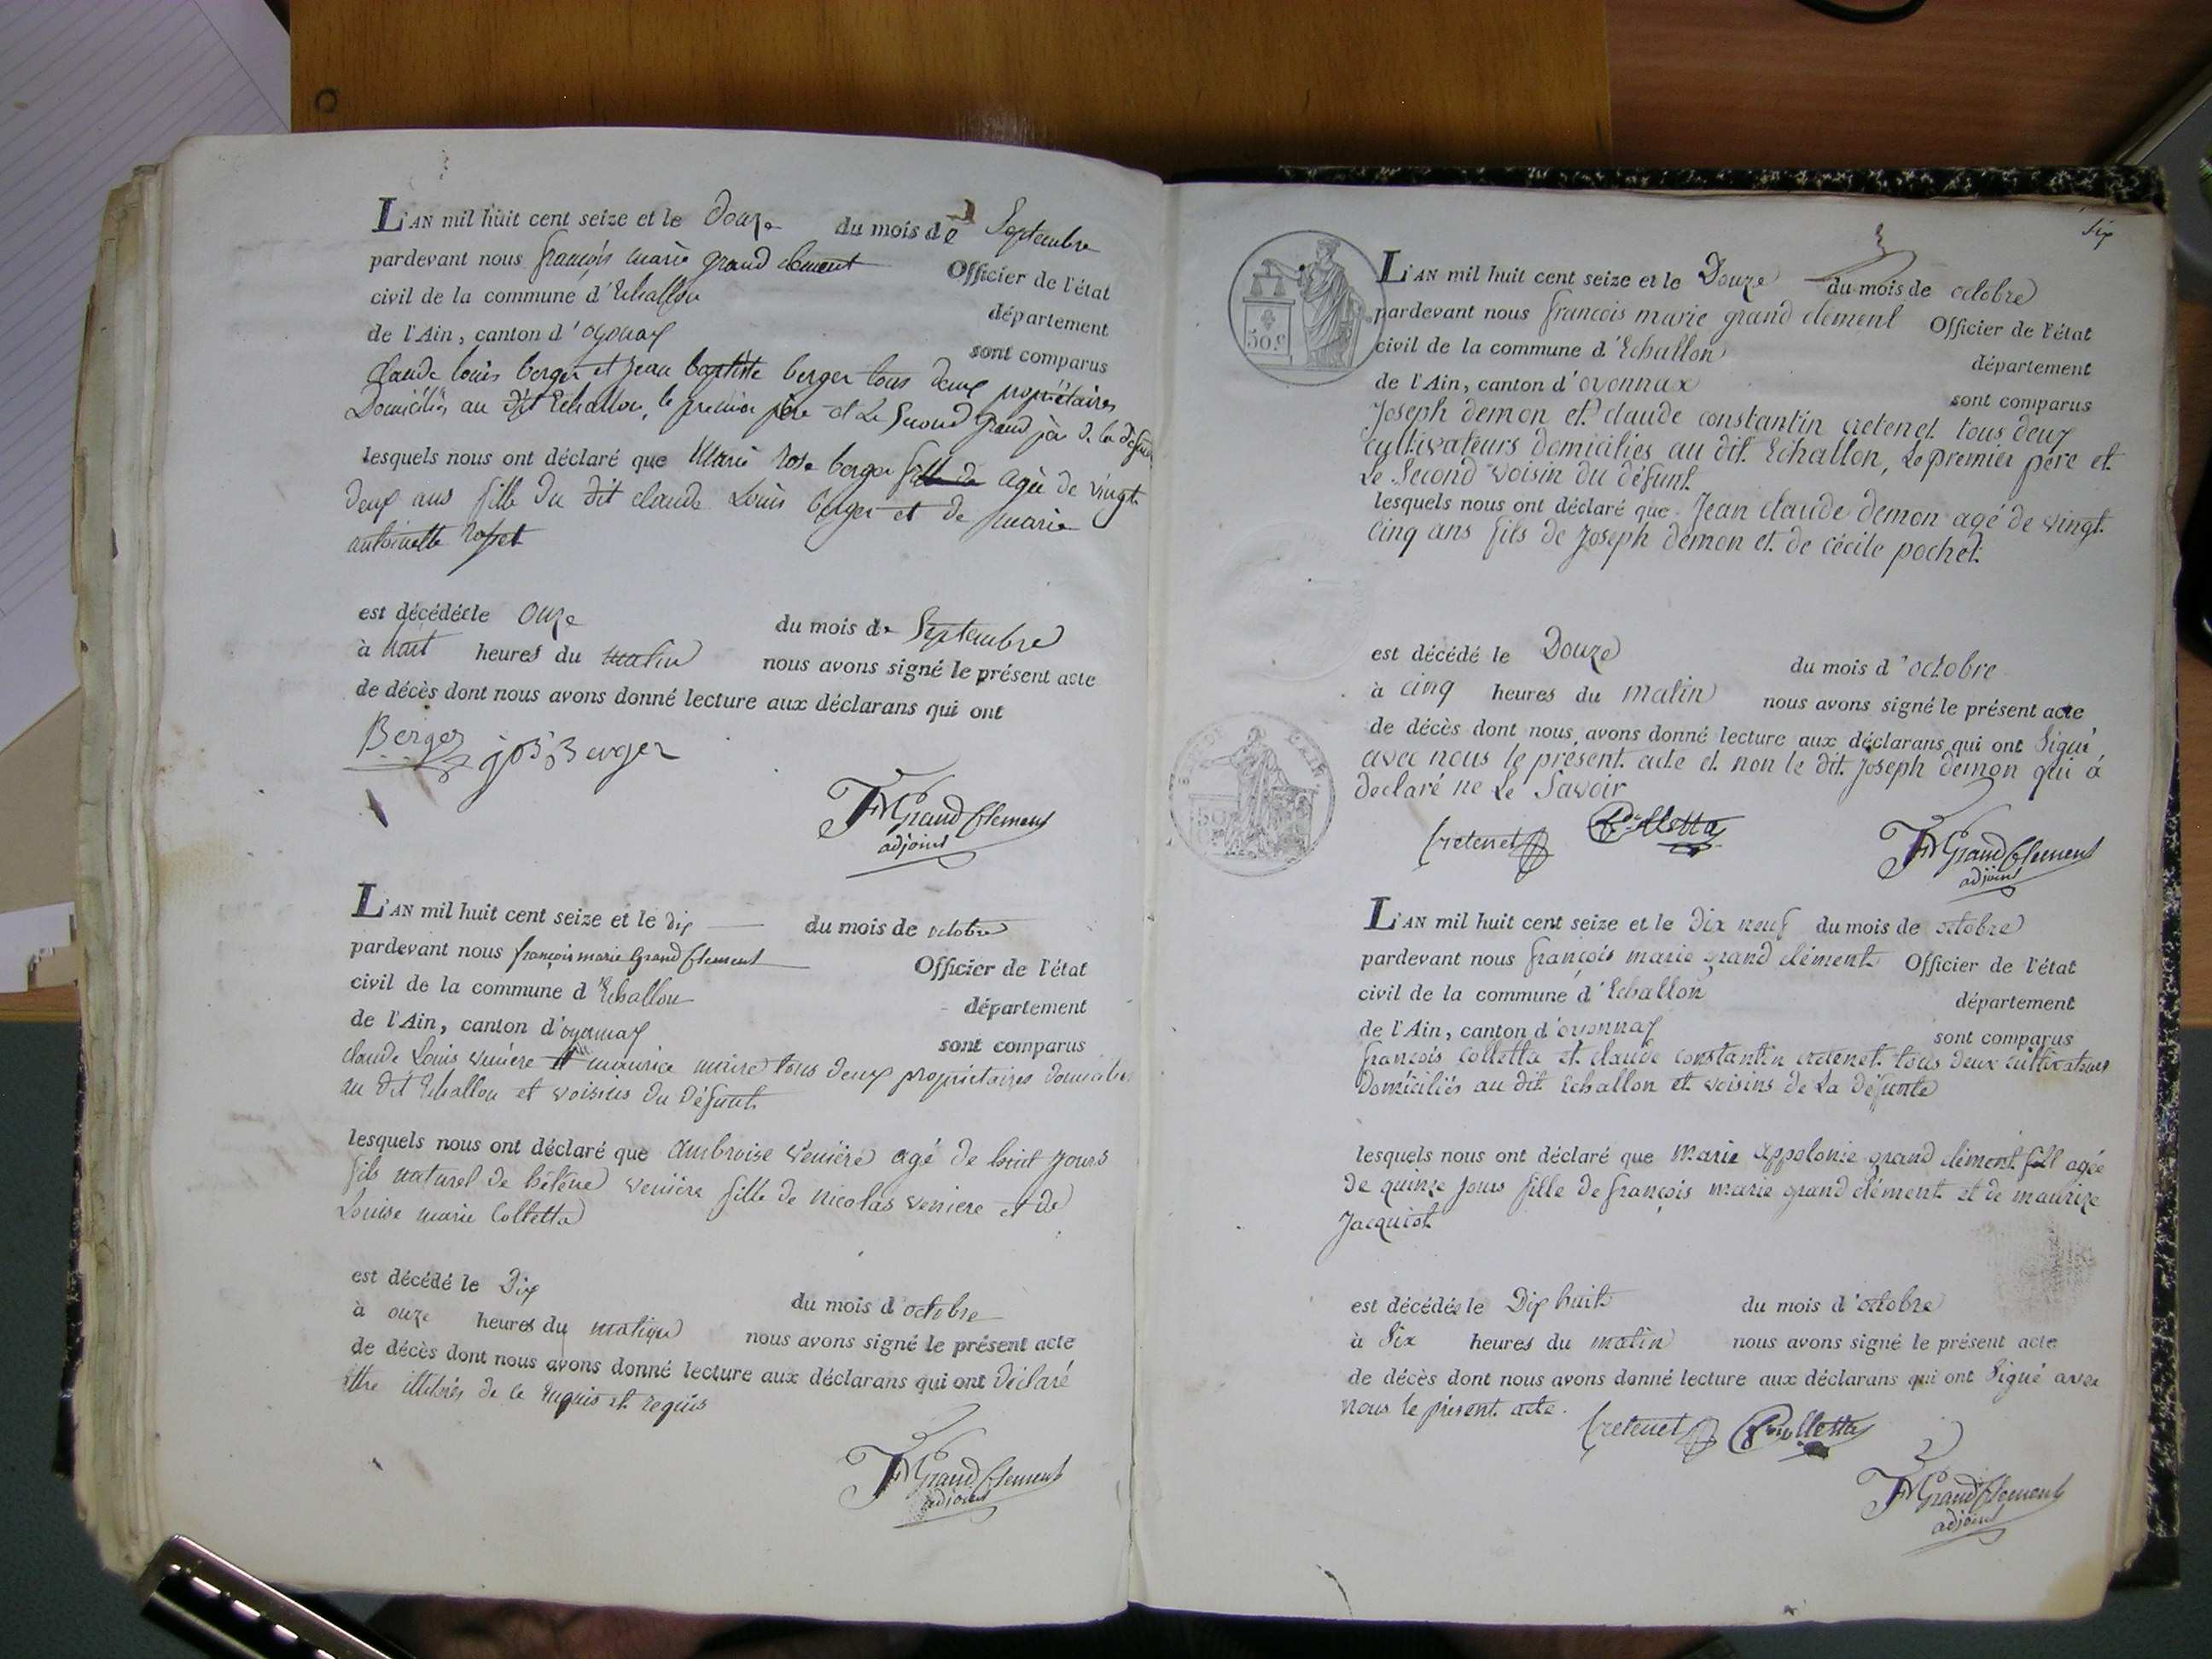 L'AN mil huit cent seize et le Douze du mois de Septembre
pardevant nous françois marie grand clement Officier de l'état
civil de la commune d'Echallon département
de l'Ain, canton d'oyonnax sont comparus
claude louis berger et jean baptiste berger tous deux propriétaires
Domiciliés au dit Echallon, le premier père et le Second grand père de la defunte
lesquels nous ont déclaré que Marie Rose berger fille de agée de vingt
deux ans fille du dit claude Louis berger et de marie
antoinette Rosset
est décédée le onze du mois de Septembre
à huit heures du matin nous avons signé le présent acte
de décès dont nous avons donné lecture aux déclarans qui ont
Berger Berger
FM Grand Clement
adjoint
L'AN mil huit cent seize et le dix du mois de octobre
pardevant nous françois marie Grand Clement Officier de l'état
civil de la commune d'Echallon département
de l'Ain, canton d'oyonnax sont comparus
claude Louis veniere et maurice maire tous deux propriétaires domicilies
au dit Echallon et voisins du Défunt
lesquels nous ont déclaré que ambroise veniere agé de huit jours
fils naturel de hélène veniere fille de nicolas veniere et de
Louise marie Colletta
est décédé le Dix du mois d'octobre
à onze heures du matin nous avons signé le présent acte
de décès dont nous avons donné lecture aux déclarans qui ont déclaré
être illitérés de ce enquis et requis
FM Grand Clement
adjoint
Six
50 c
L'AN mil huit cent seize et le Douze du mois de octobre
pardevant nous francois marie grand clement Officier de l'état
civil de la commune d'Echallon département
de l'Ain, canton d'oyonnax sont comparus
Joseph demon et claude constantin cretenet tous deux
cultivateurs domiciliés au dit Echallon, Le premier père et
Le Second voisin du défunt
lesquels nous ont déclaré que Jean claude demon agé de vingt
cinq ans fils de Joseph demon et de cécile pochet
est décédé le Douze du mois d'octobre
à cinq heures du matin nous avons signé le présent acte
de décès dont nous avons donné lecture aux déclarans qui ont Signé
avec nous le présent acte et non le dit Joseph demon qui à
declaré ne Le Savoir
Cretenet Colletta
FM Grand Clement
adjoint
L'AN mil huit cent seize et le Dix neuf du mois de octobre
pardevant nous françois marie grand clément Officier de l'état
civil de la commune d'Echallon département
de l'Ain, canton d'oyonnax sont comparus
françois Colletta et claude constantin cretenet tous deux cultivateurs
Domiciliés au dit Echallon et voisins de La défunte
lesquels nous ont déclaré que Marie appolonie grand clément fill agée
De quinze jours fille de françois marie grand clément et de maurize
Jacquiot
est décédée le Dix huit du mois d'octobre
à Six heures du matin nous avons signé le présent acte
de décès dont nous avons donné lecture aux déclarans qui ont Signé avec
nous le présent acte.
Cretenet Colletta
FM Grand Clement
adjoint